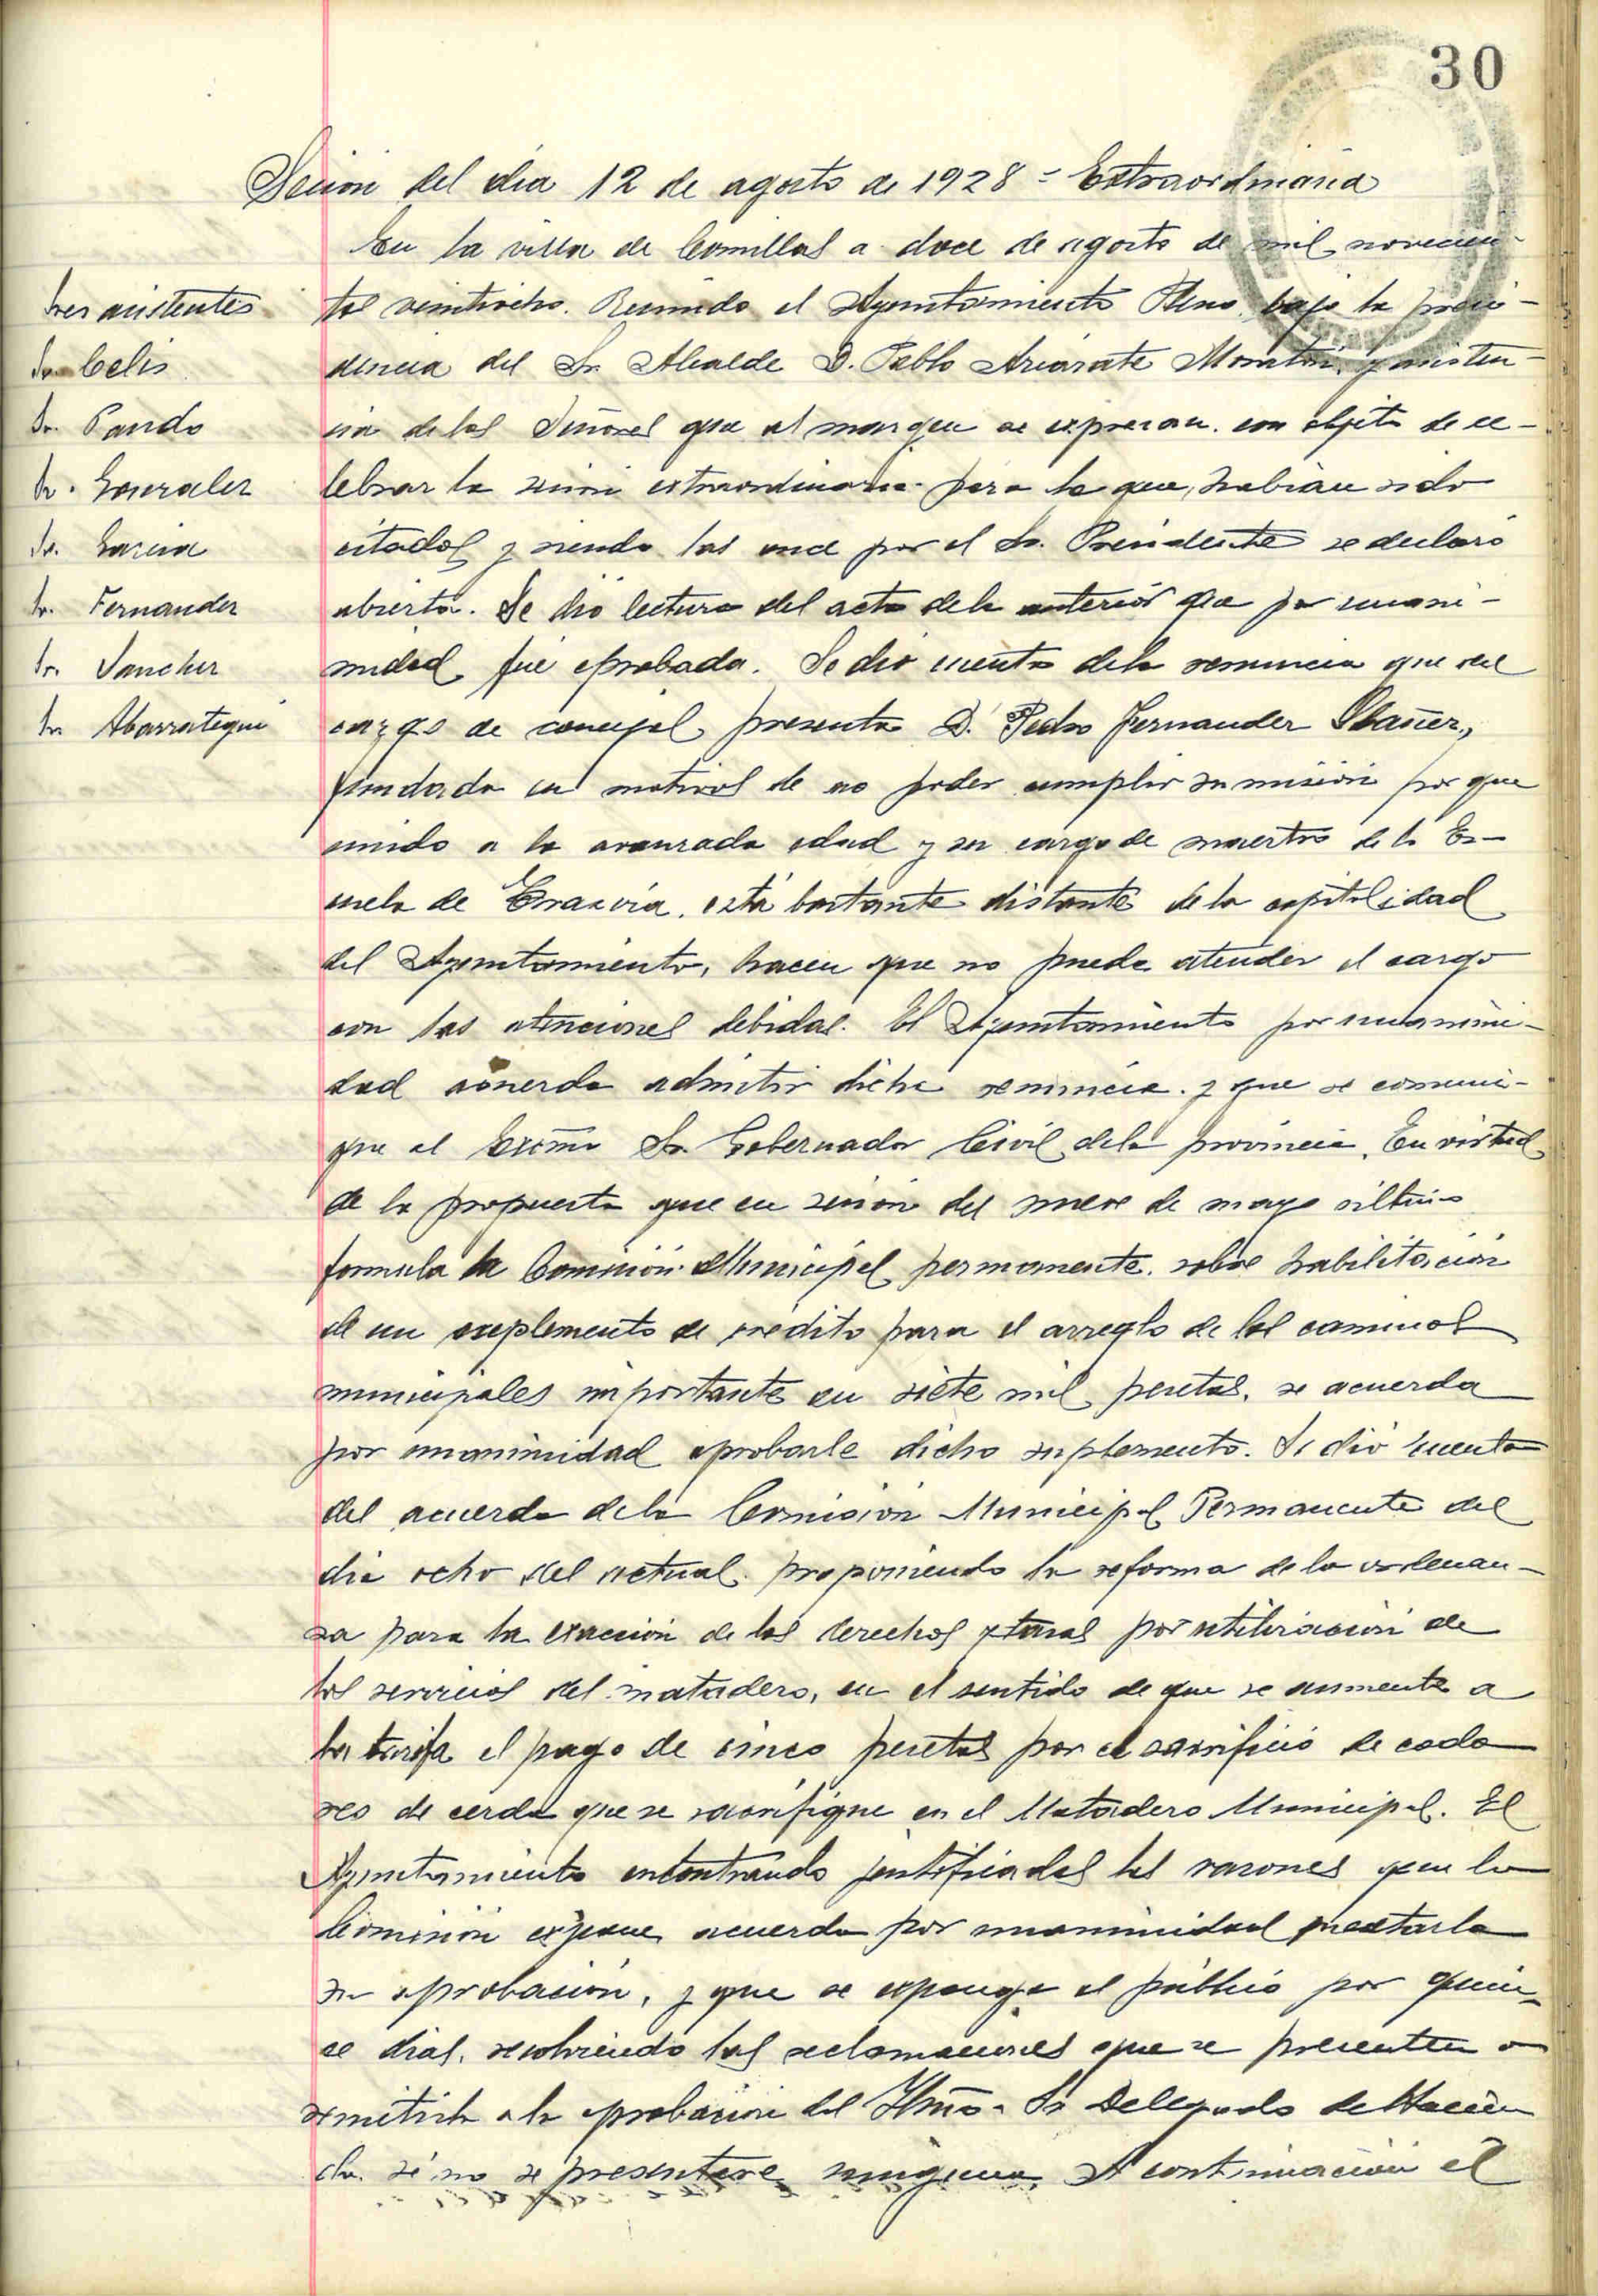 30
Sesion del dia 12 de agosto de 1928 = Extraordinaria
En la villa de Comillas a doce de agosto de mil novecien-
Sres asistentes
tos veintiocho. Reunido el Ayuntamiento Pleno, bajo la presi-
Sr. Celis
dencia del Sr. Alcalde D. Pablo Ariárate y asisten-
Sr. Pando
cia de los Señores que al margen se expresan. con objeto de ce-
Sr. Gonzalez
lebrar la sesión extraordinaria para la que, habian sido
Sr. Garcia
citados y siendo las once por el Sr. Presidente se declaró
Sr. Fernandez
abierta. Se dió lectura del acta de la anterior que por unani-
Sr. Sanchez
midad fué aprobada. Se dio cuenta de la renuncia que del
Sr. Abarrategui
cargo de concejal presenta D. Pedro Fernandez Ibañez,
fundada en motivos de no poder cumplir su misión por que
unido a la avanzada edad y su cargo de maestro de la Es-
cuela de está bastante distante de la capitalidad
del Ayuntamiento, hacen que no pueda atender el cargo
con las atenciones debidas. El Ayuntamiento por unanimi-
dad acuerda admitir dicha renuncia. y que se comuni-
que al Excmo Sr. Gobernador Civil de la provincia. En virtud
de la propuesta que en sesión del nueve de mayo último
formula la Comisión Municipal permanente. sobre habilitación
de un suplemento de crédito para el arreglo de los caminos
municipales importante en siete mil pesetas, se acuerda
por unanimidad aprobarle dicho suplemento. Se dió cuenta
del acuerdo de la Comisión Municipal Permanente del
dia ocho del actual. proponiendo la reforma de la ordenan-
za para la exacción de los derechos y tasas por utilización de
los servicios del matadero, en el sentido de que se aumente a
la tarifa el pago de cinco pesetas por el sacrificio de cada
res de cerda que se sacrifique en el Matadero Municipal. El
Ayuntamiento encontrando justificadas las razones que la
Comisión expone acuerda por unanimidad prestarla
su aprobación, y que se exponga al público por quin-
ce dias. resolviendo las reclamaciones que se presenten o
remitirla a la aprobación del Ilmo. Sr Delegado de Hacien
da. si no se presentare ninguna. A continuación el